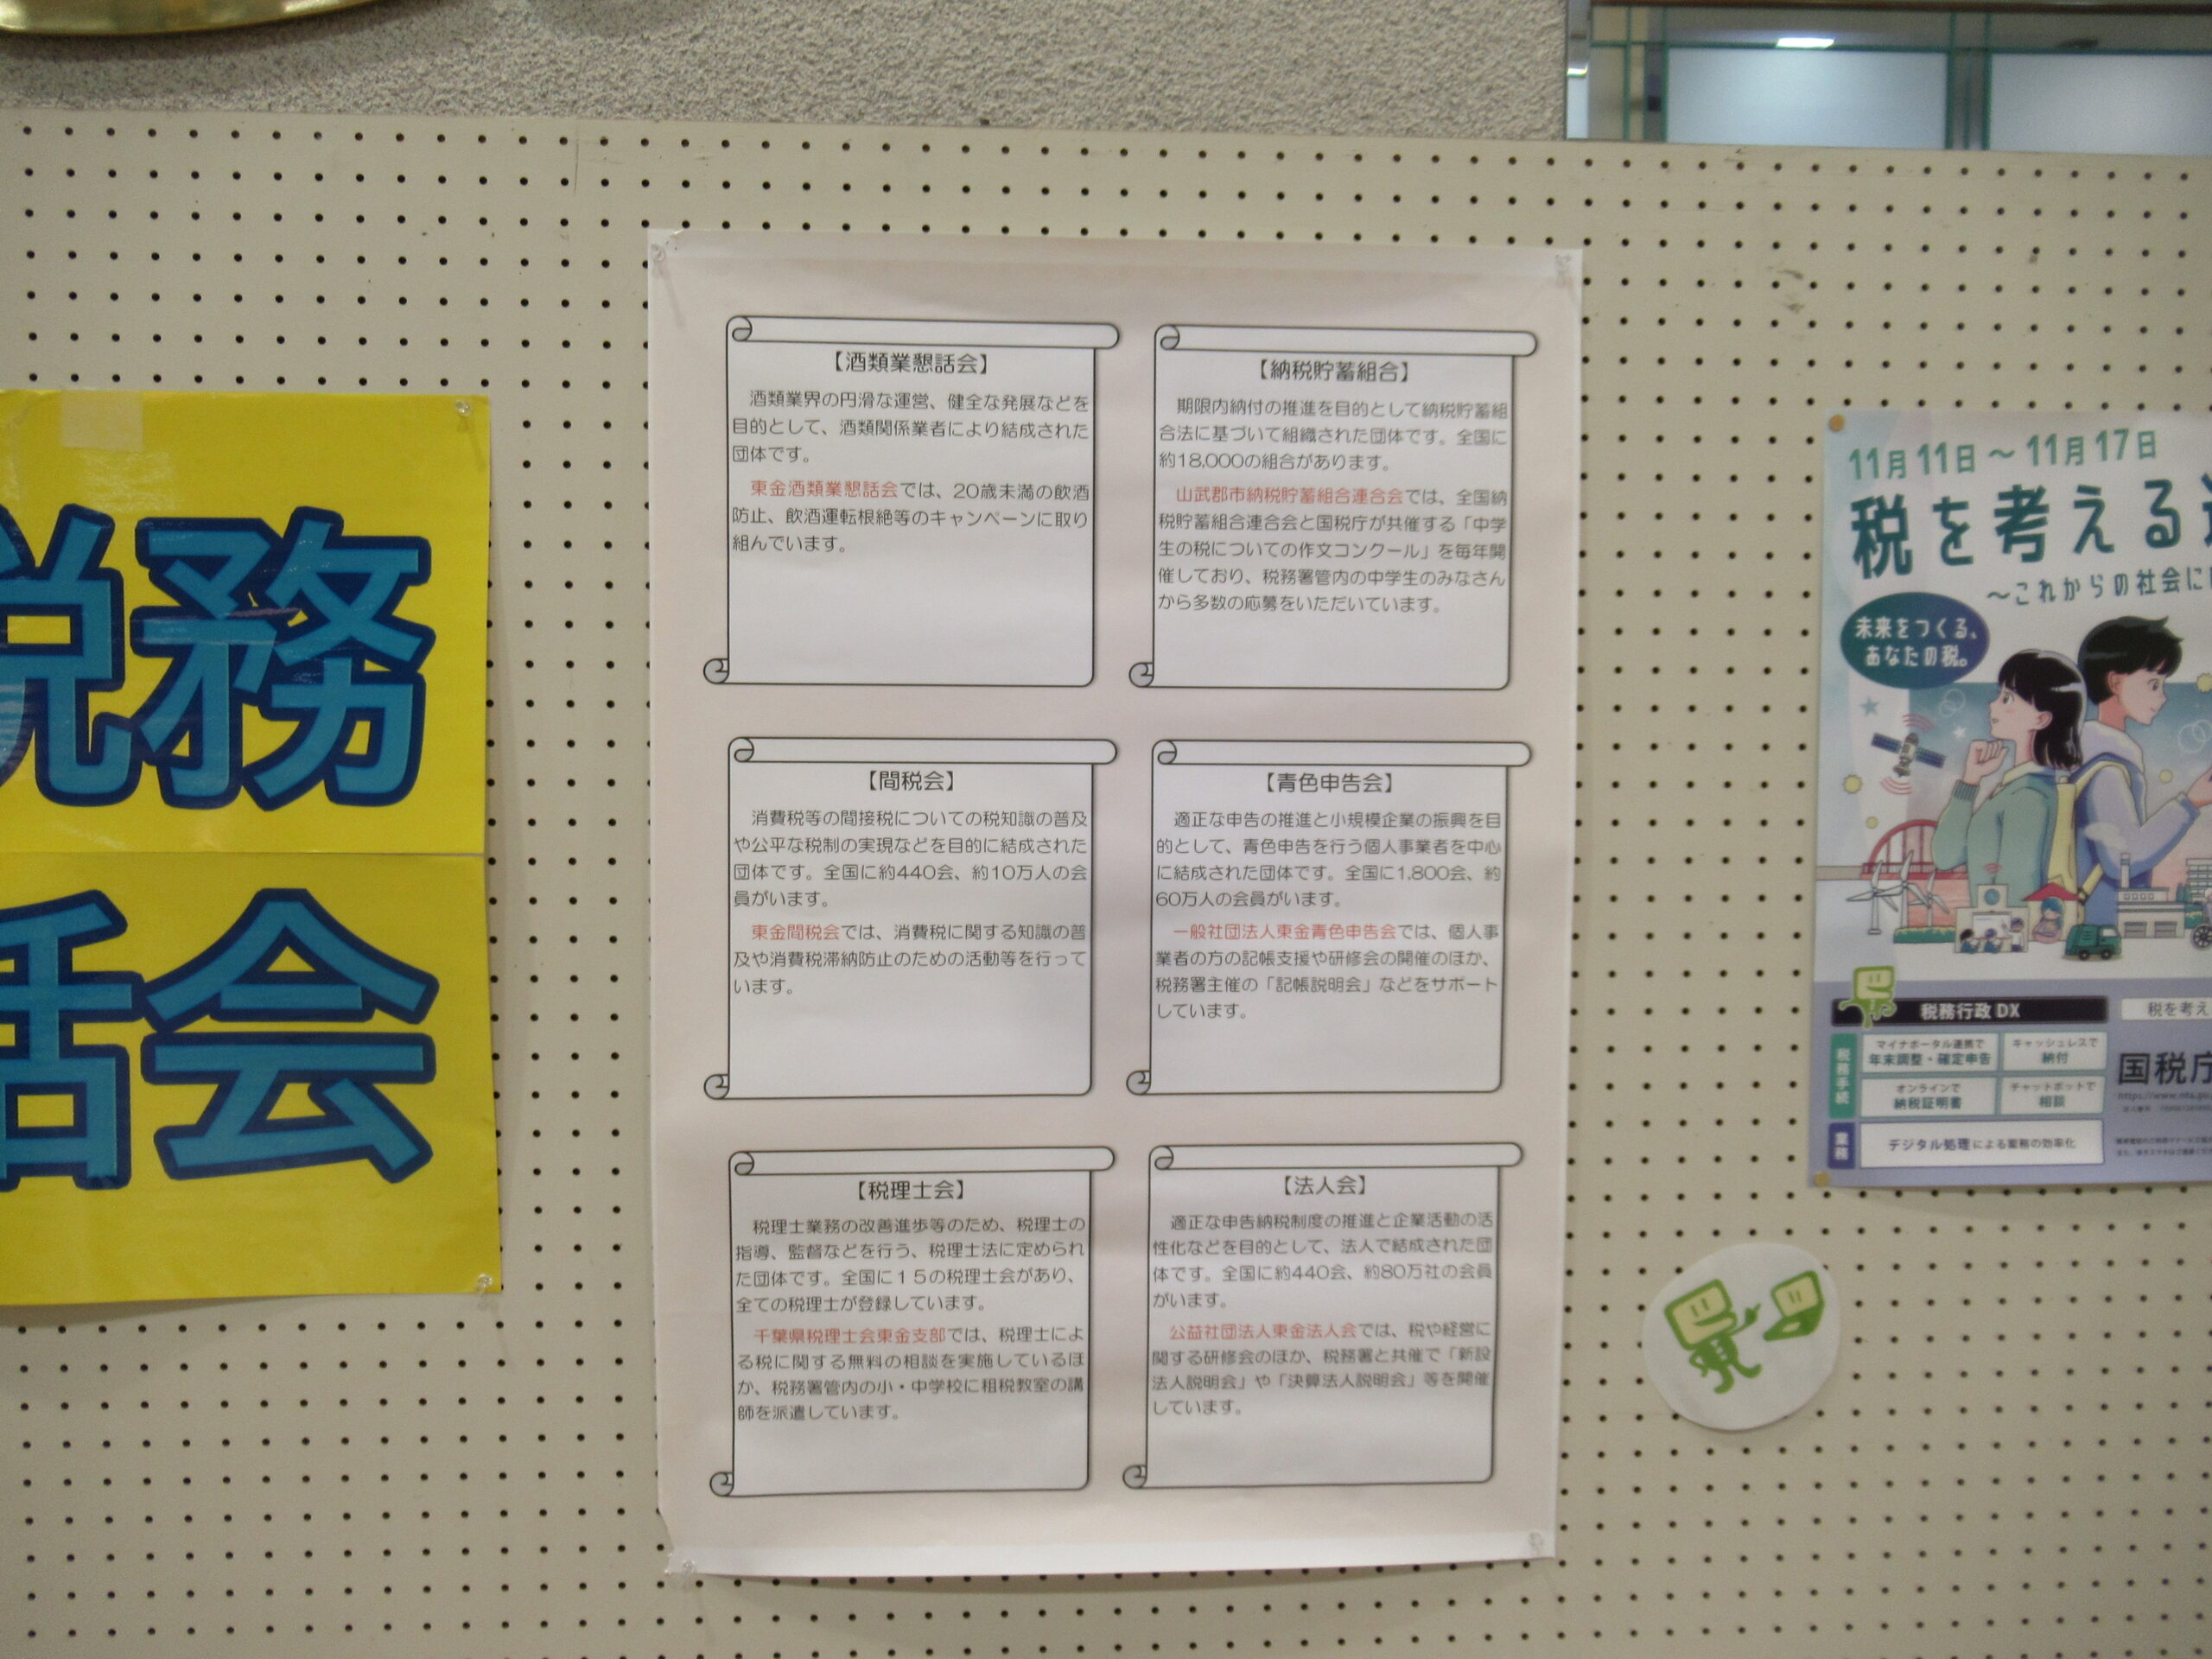 税務
話会
【酒類業懇話会】
酒類業界の円滑な運営、健全な発展などを
目的として、酒類関係業者により結成された
団体です。
東金酒類業懇話会では、20歳未満の飲酒
防止、飲酒運転根絶等のキャンペーンに取り
組んでいます。
【納税貯蓄組合】
期限内納付の推進を目的として納税貯蓄組
合法に基づいて組織された団体です。全国に
約18,000の組合があります。
山武郡市納税貯蓄組合連合会では、全国納
税貯蓄組合連合会と国税庁が共催する「中学
生の税についての作文コンクール」を毎年開
催しており、税務署管内の中学生のみなさん
から多数の応募をいただいています。
【間税会】
消費税等の間接税についての税知識の普及
や公平な税制の実現などを目的に結成された
団体です。全国に約440会、約10万人の会
員がいます。
東金間税会では、消費税に関する知識の普
及や消費税滞納防止のための活動等を行って
います。
【青色申告会】
適正な申告の推進と小規模企業の振興を目
的として、青色申告を行う個人事業者を中心
に結成された団体です。全国に1,800会、約
60万人の会員がいます。
一般社団法人東金青色申告会では、個人事
業者の方の記帳支援や研修会の開催のほか、
税務署主催の「記帳説明会」などをサポート
しています。
【税理士会】
税理士業務の改善進歩等のため、税理士の
指導、監督などを行う、税理士法に定められ
た団体です。全国に１５の税理士会があり、
全ての税理士が登録しています。
千葉県税理士会東金支部では、税理士によ
る税に関する無料の相談を実施しているほ
か、税務署管内の小・中学校に租税教室の講
師を派遣しています。
【法人会】
適正な申告納税制度の推進と企業活動の活
性化などを目的として、法人で結成された団
体です。全国に約440会、約80万社の会員
がいます。
公益社団法人東金法人会では、税や経営に
関する研修会のほか、税務署と共催で「新設
法人説明会」や「決算法人説明会」等を開催
しています。
11月11日～11月17日
税を考える
～これからの社会に
未来をつくる、
あなたの税。
税務行政 DX
税を考え
税務手続
マイナポータル連携で
年末調整・確定申告
キャッシュレスで
納付
オンラインで
納税証明書
チャットボットで
相談
国税庁
業務
デジタル処理による業務の効率化